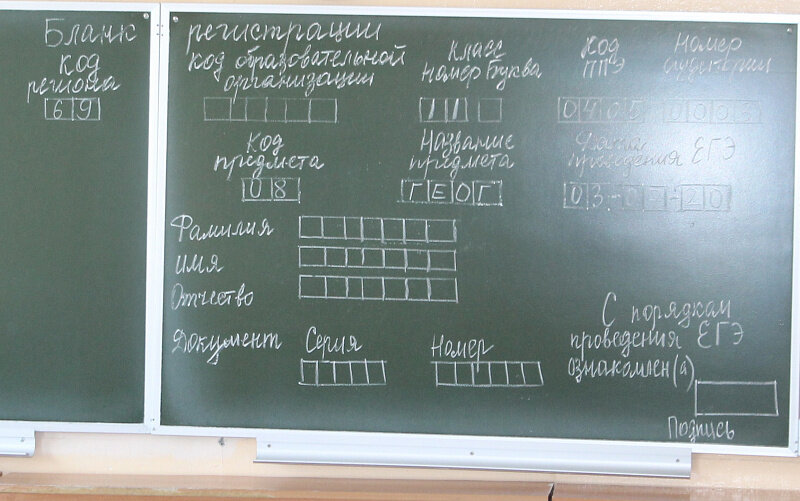 Бланк регистрации
код региона
69
код образовательной организации
класс
номер буква
11
Код ППЭ
0405
Номер аудитории
000
Код предмета
08
Название предмета
ГЕОГ
Дата проведения ЕГЭ
03-07-20
Фамилия
имя
Отчество
Документ Серия Номер
С порядкам
проведения ЕГЭ
ознакомлен(а)
Подпись